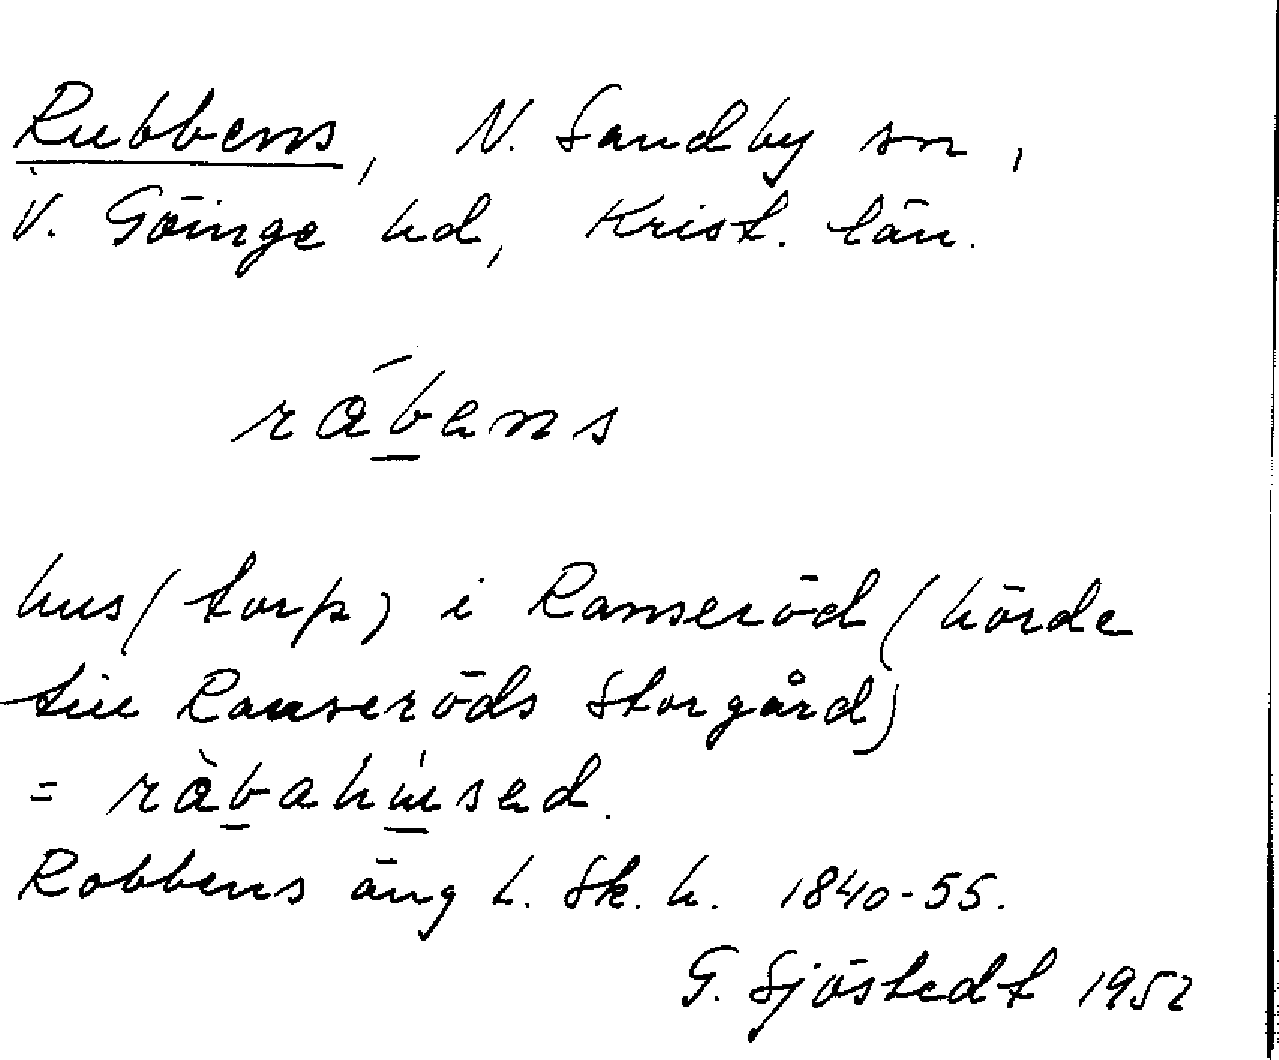 Rubbens, N. Sandby sn,
V. Göinge hd, Krist. län.
råb̲ens
hus (torp) i Ranseröd (hörde
till Ranseröds Storgård)
= råb̲ahúsed.
Robbens äng L. Sk. h. 1840-55.
G. Sjöstedt 1952